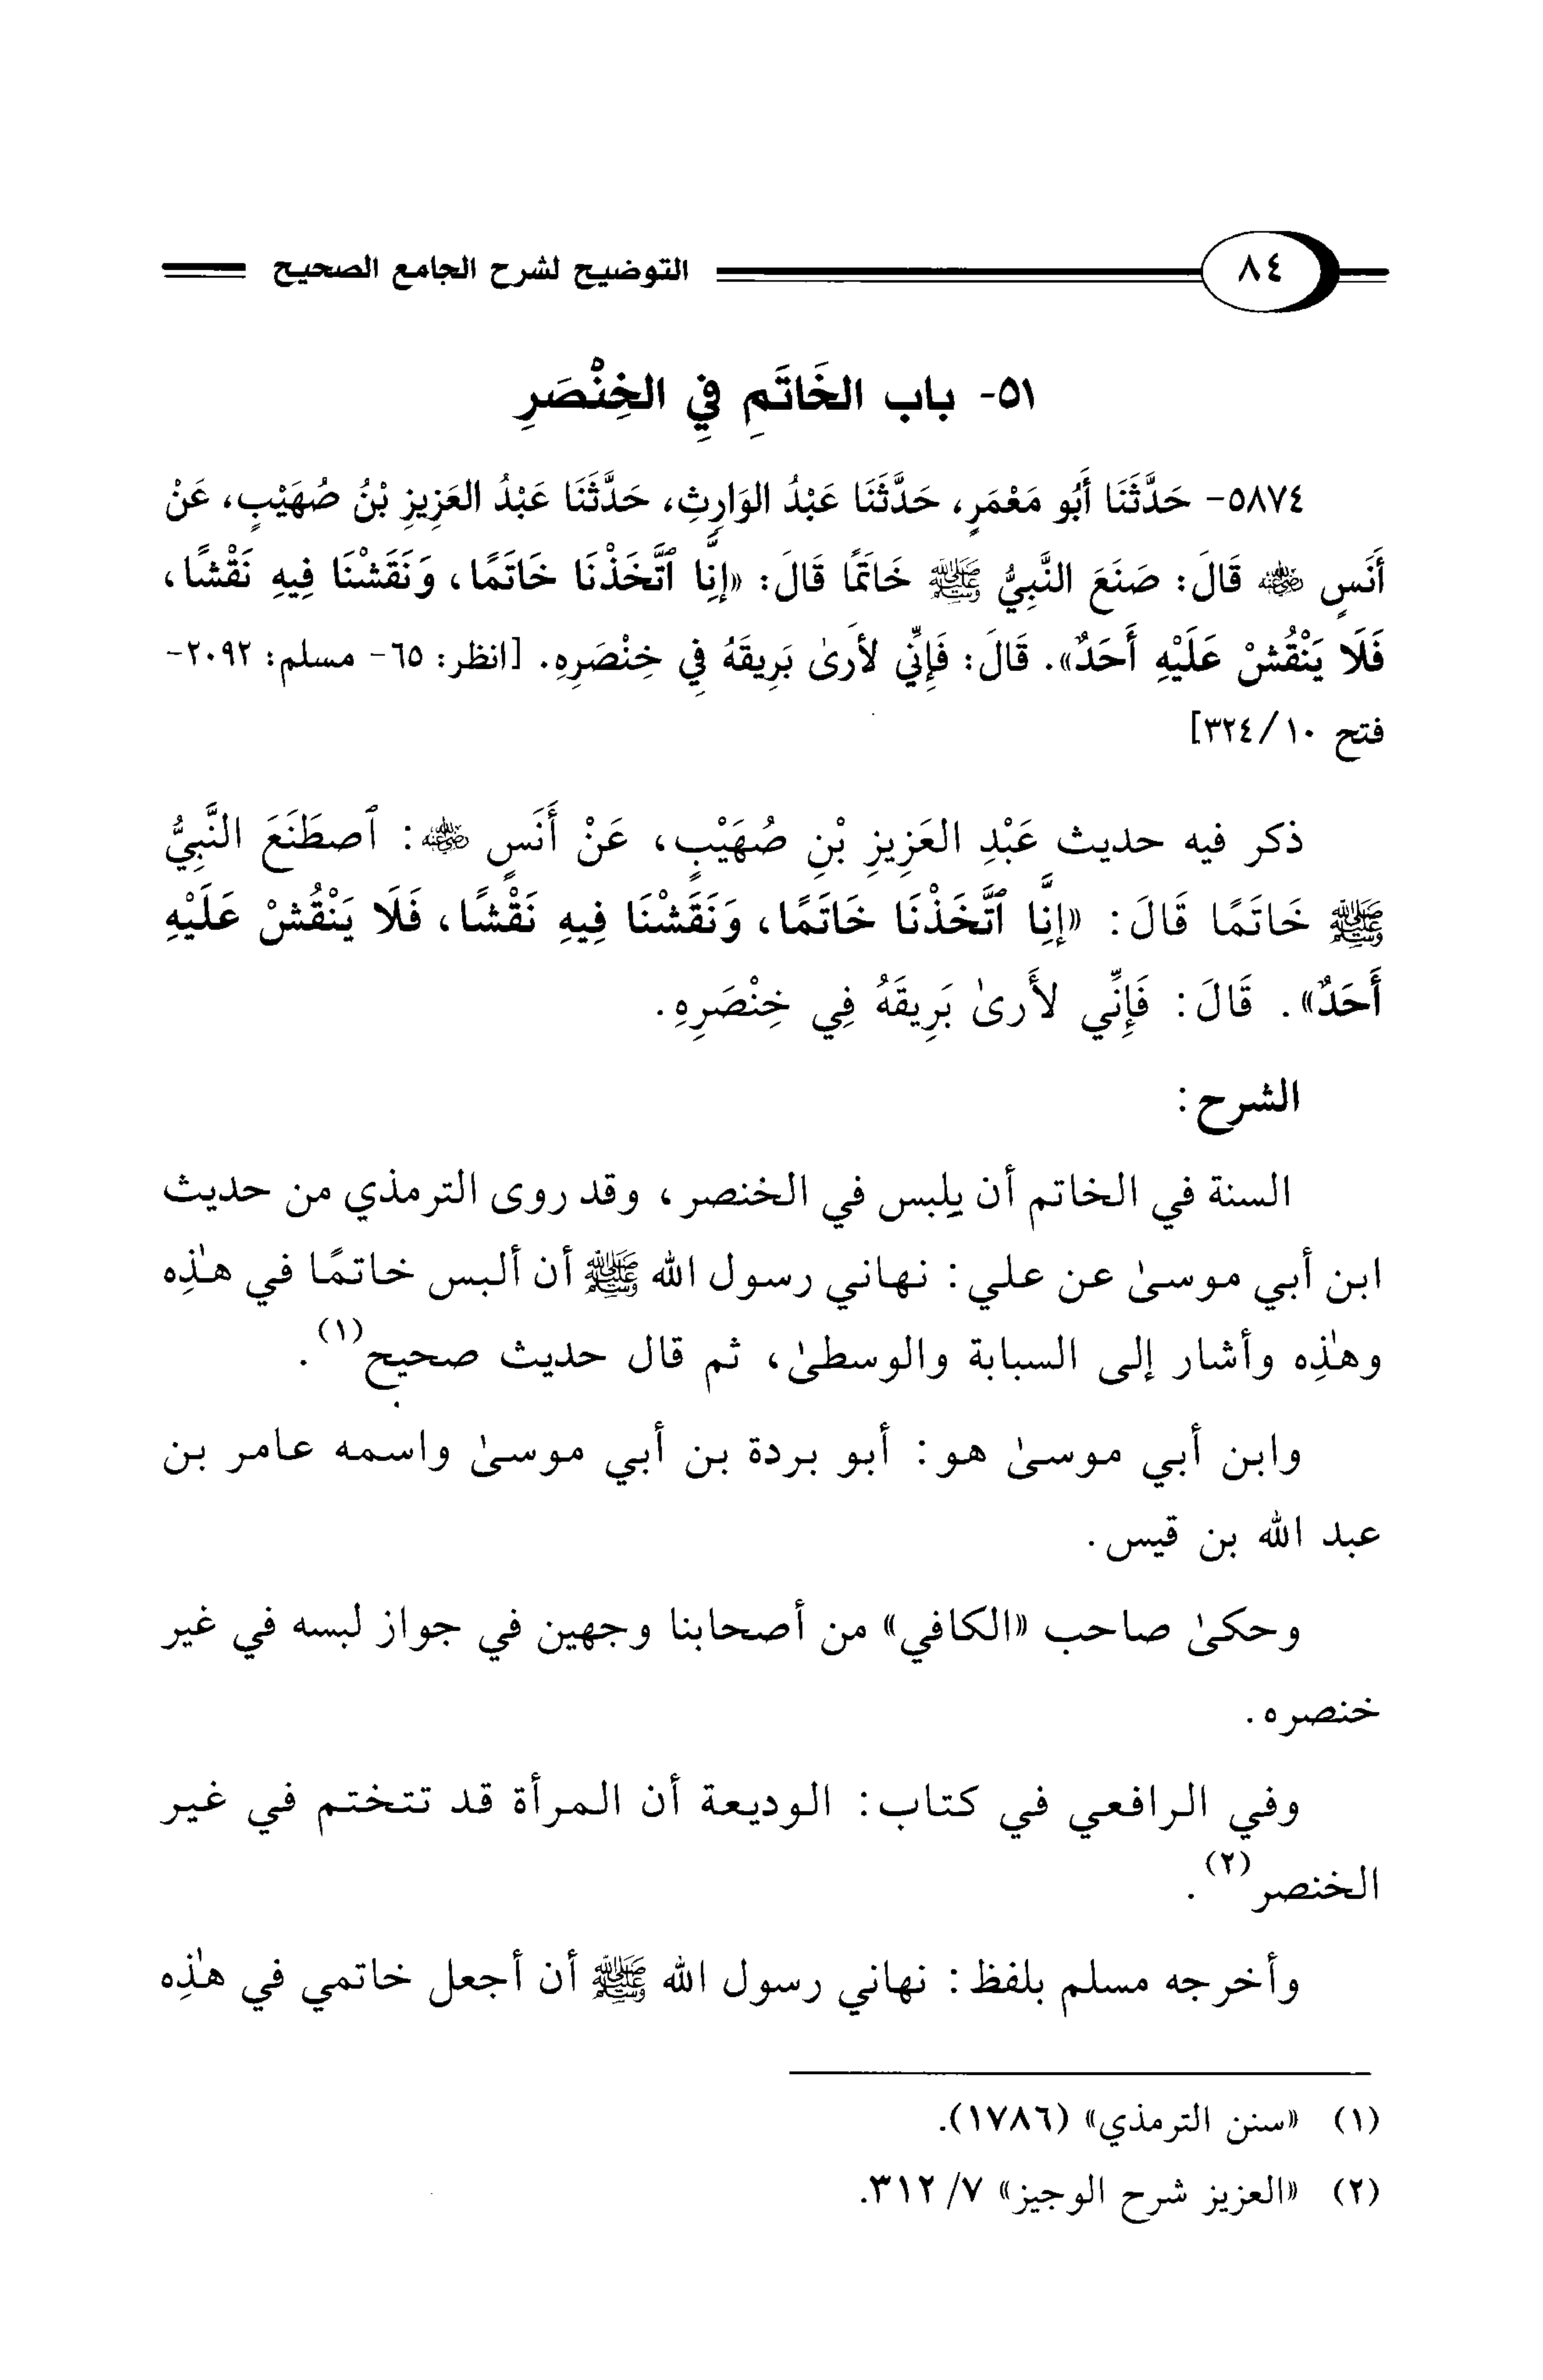 ٨٤ التوضيح لشرح الجامع الصحيح
٥١- باب الخَاتَمِ فِي الخِنْصَرِ
٥٨٧٤- حَدَّثَنَا أَبُو مَعْمَرٍ، حَدَّثَنَا عَبْدُ الوَارِثِ، حَدَّثَنَا عَبْدُ العَزِيزِ بْنُ صُهَيْبٍ، عَنْ
أَنَسٍ رضي الله عنه قَالَ: صَنَعَ النَّبِيُّ ﷺ خَاتَمًا قَالَ: «إِنَّا ٱتَّخَذْنَا خَاتَمًا، وَنَقَشْنَا فِيهِ نَقْشًا،
فَلَا يَنْقُشْ عَلَيْهِ أَحَدٌ». قَالَ: فَإِنِّي لأَرىٰ بَرِيقَهُ فِي خِنْصَرِهِ. [انظر: ٦٥- مسلم: ٢٠٩٢-
فتح ١٠/ ٣٢٤]
ذكر فيه حديث عَبْدِ العَزِيزِ بْنِ صُهَيْبٍ، عَنْ أَنَسٍ رضي الله عنه: ٱصطَنَعَ النَّبِيُّ
ﷺ خَاتَمًا قَالَ: «إِنَّا ٱتَّخَذْنَا خَاتَمًا، وَنَقَشْنَا فِيهِ نَقْشًا، فَلَا يَنْقُشْ عَلَيْهِ
أَحَدٌ». قَالَ: فَإِنِّي لأَرىٰ بَرِيقَهُ فِي خِنْصَرِهِ.
الشرح:
السنة في الخاتم أن يلبس في الخنصر، وقد روى الترمذي من حديث
ابن أبي موسىٰ عن علي: نهاني رسول الله ﷺ أن ألبس خاتمًا في هذِه
وهذِه وأشار إلى السبابة والوسطىٰ، ثم قال حديث صحيح(١).
وابن أبي موسىٰ هو: أبو بردة بن أبي موسىٰ واسمه عامر بن
عبد الله بن قيس.
وحكىٰ صاحب «الكافي» من أصحابنا وجهين في جواز لبسه في غير
خنصره.
وفي الرافعي في كتاب: الوديعة أن المرأة قد تتختم في غير
الخنصر(٢).
وأخرجه مسلم بلفظ: نهاني رسول الله ﷺ أن أجعل خاتمي في هذِه
(١) «سنن الترمذي» (١٧٨٦).
(٢) «العزيز شرح الوجيز» ٧/ ٣١٢.